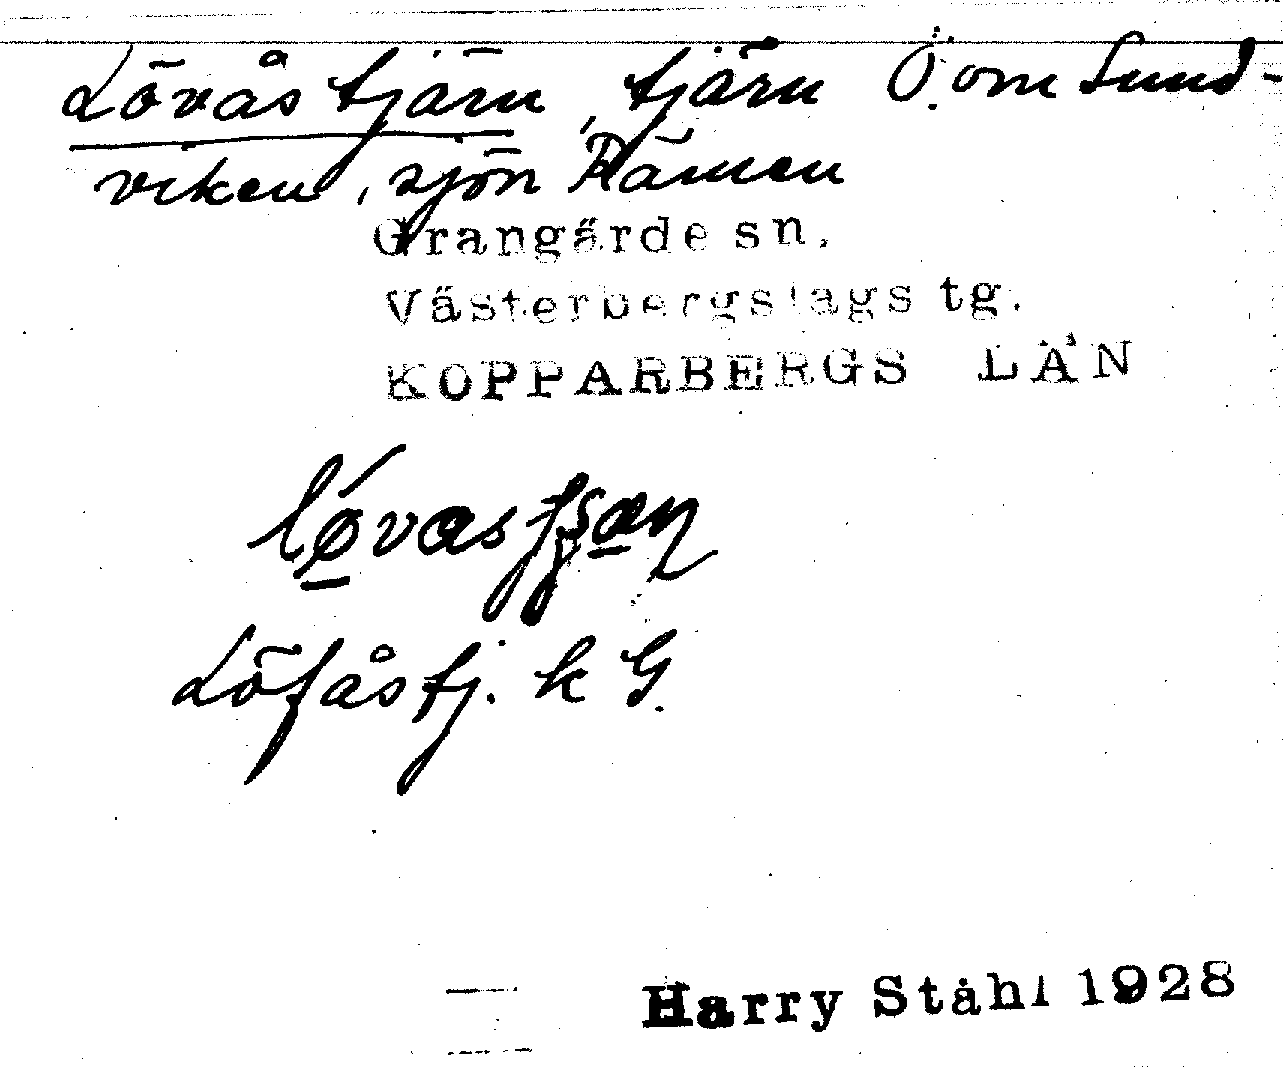 Lövåstjärn, tjärn Ö. om Sund-
viken, sjön Rämen
Grangärde sn.
Västerbergslags tg.
KOPPARBERGS LÄN
Löfåstj. k G.
Harry Ståhl 1928